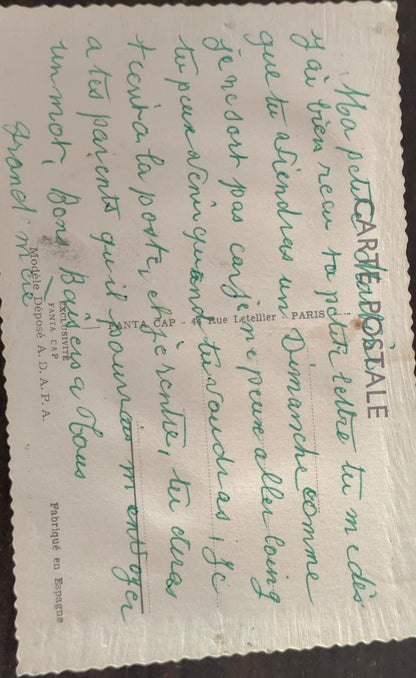 CARTE POSTALE
Ma petite
j'ai bien recu ta petite lettre tu me dis
que tu viendras un Dimanche comme
je ne sort pas car je ne peux aller loing
tu peux venir quand tu voudras, je
ta la poste, et je rentre, tu diras
a tes parents qu'il m envoyer
un mot, Bons Baisers a Tous
Grand mère
FANTA CAP - 4 Rue Letellier - PARIS
EXCLUSIVITÉ
FANTA CAP
Modèle Déposé A. D. A. P. A.
Fabriqué en Espagne